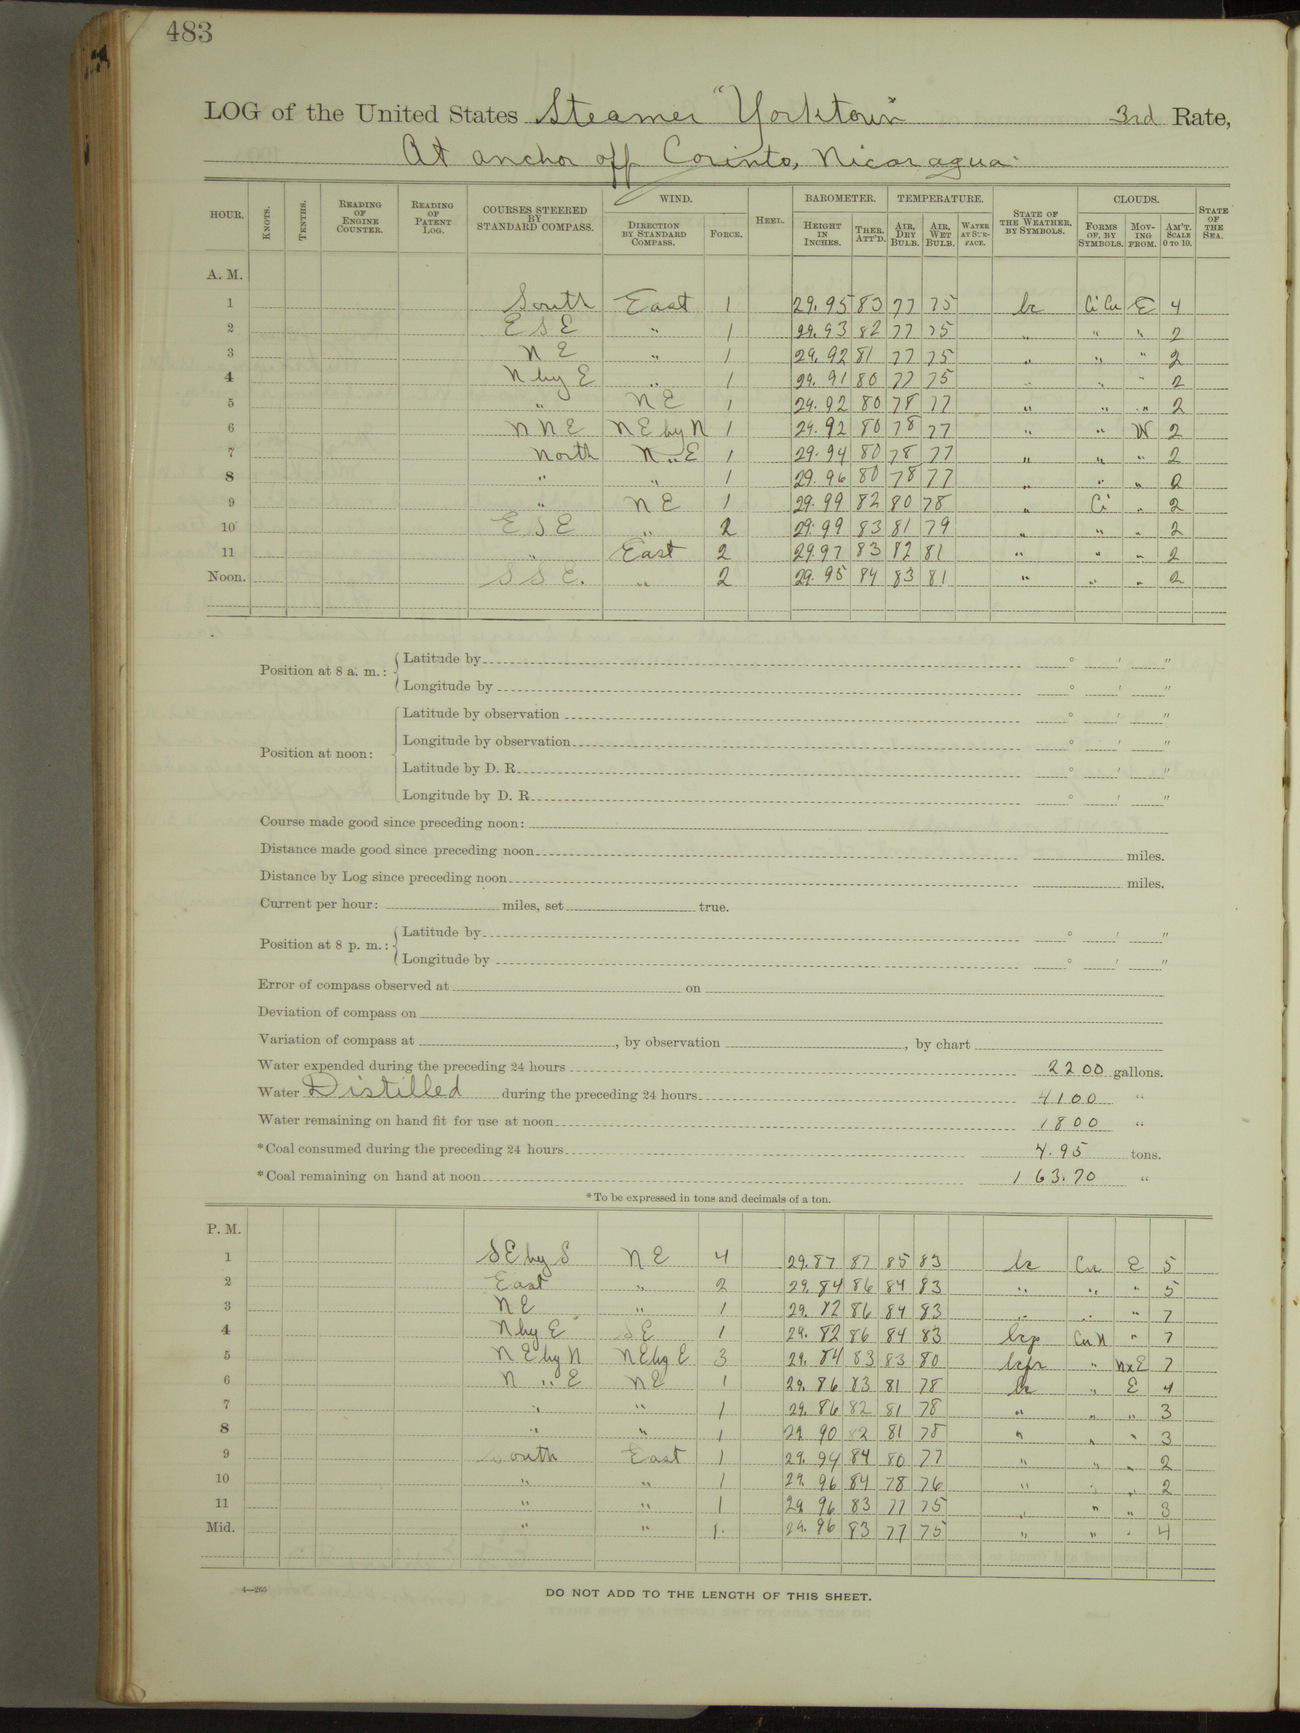 483
LOG of the United States Steamer "Yorktown" 3rd Rate,
At anchor off Corinto, Nicaragua.
HOUR. KNOTS. TENTHS. READING OF ENGINE COUNTER. READING OF PATENT LOG. COURSES STEERED BY STANDARD COMPASS. WIND. DIRECTION BY STANDARD COMPASS. FORCE. HEEL. BAROMETER. HEIGHT IN INCHES. THER. ATT'D. TEMPERATURE. AIR, DRY BULB. AIR, WET BULB. WATER AT SURFACE. STATE OF THE WEATHER, BY SYMBOLS. CLOUDS. FORMS OF, BY SYMBOLS. MOVING FROM. AM'T. SCALE 0 TO 10. STATE OF THE SEA.
A. M.
1 South East 1 29.95 83 77 75 bc Ci Cu E 4
2 E S E " 1 29.93 82 77 75 " " " 2
3 N E " 1 29.92 81 77 75 " " " 2
4 N by E " 1 29.91 80 77 75 " " " 2
5 " N E 1 29.92 80 78 77 " " " 2
6 N N E N E by N 1 29.92 80 78 77 " " W 2
7 North N " E 1 29.94 80 78 77 " " " 2
8 " " 1 29.96 80 78 77 " " " 2
9 " N E 1 29.99 82 80 78 " Ci " 2
10 E S E " 2 29.99 83 81 79 " " " 2
11 " East 2 29.97 83 82 81 " " " 2
Noon. S S E. " 2 29.95 84 83 81 " " " 2
Position at 8 a. m.: Latitude by ° ' "
Longitude by ° ' "
Position at noon: Latitude by observation ° ' "
Longitude by observation ° ' "
Latitude by D. R. ° ' "
Longitude by D. R. ° ' "
Course made good since preceding noon:
Distance made good since preceding noon miles.
Distance by Log since preceding noon miles.
Current per hour: miles, set true.
Position at 8 p. m.: Latitude by ° ' "
Longitude by ° ' "
Error of compass observed at on
Deviation of compass on
Variation of compass at , by observation , by chart
Water expended during the preceding 24 hours 2200 gallons.
Water Distilled during the preceding 24 hours 4100 "
Water remaining on hand fit for use at noon 1800 "
*Coal consumed during the preceding 24 hours 4.95 tons.
*Coal remaining on hand at noon 163.70 "
*To be expressed in tons and decimals of a ton.
P. M.
1 S E by S N E 4 29.87 87 85 83 bc Cu E 5
2 East " 2 29.84 86 84 83 " " " 5
3 N E " 1 29.82 86 84 83 " " " 7
4 N by E S E 1 29.82 86 84 83 bcp Cu N " 7
5 N E by N N E by E 3 29.84 83 83 80 " N x E 7
6 N " E N E 1 29.86 83 81 78 bc " E 4
7 " " 1 29.86 82 81 78 " " " 3
8 " " 1 29.90 82 81 78 " " " 3
9 South East 1 29.94 84 80 77 " " " 2
10 " " 1 29.96 84 78 76 " " " 2
11 " " 1 29.96 83 77 75 " " " 3
Mid. " " 1. 29.96 83 77 75 " " " 4
4—265
DO NOT ADD TO THE LENGTH OF THIS SHEET.